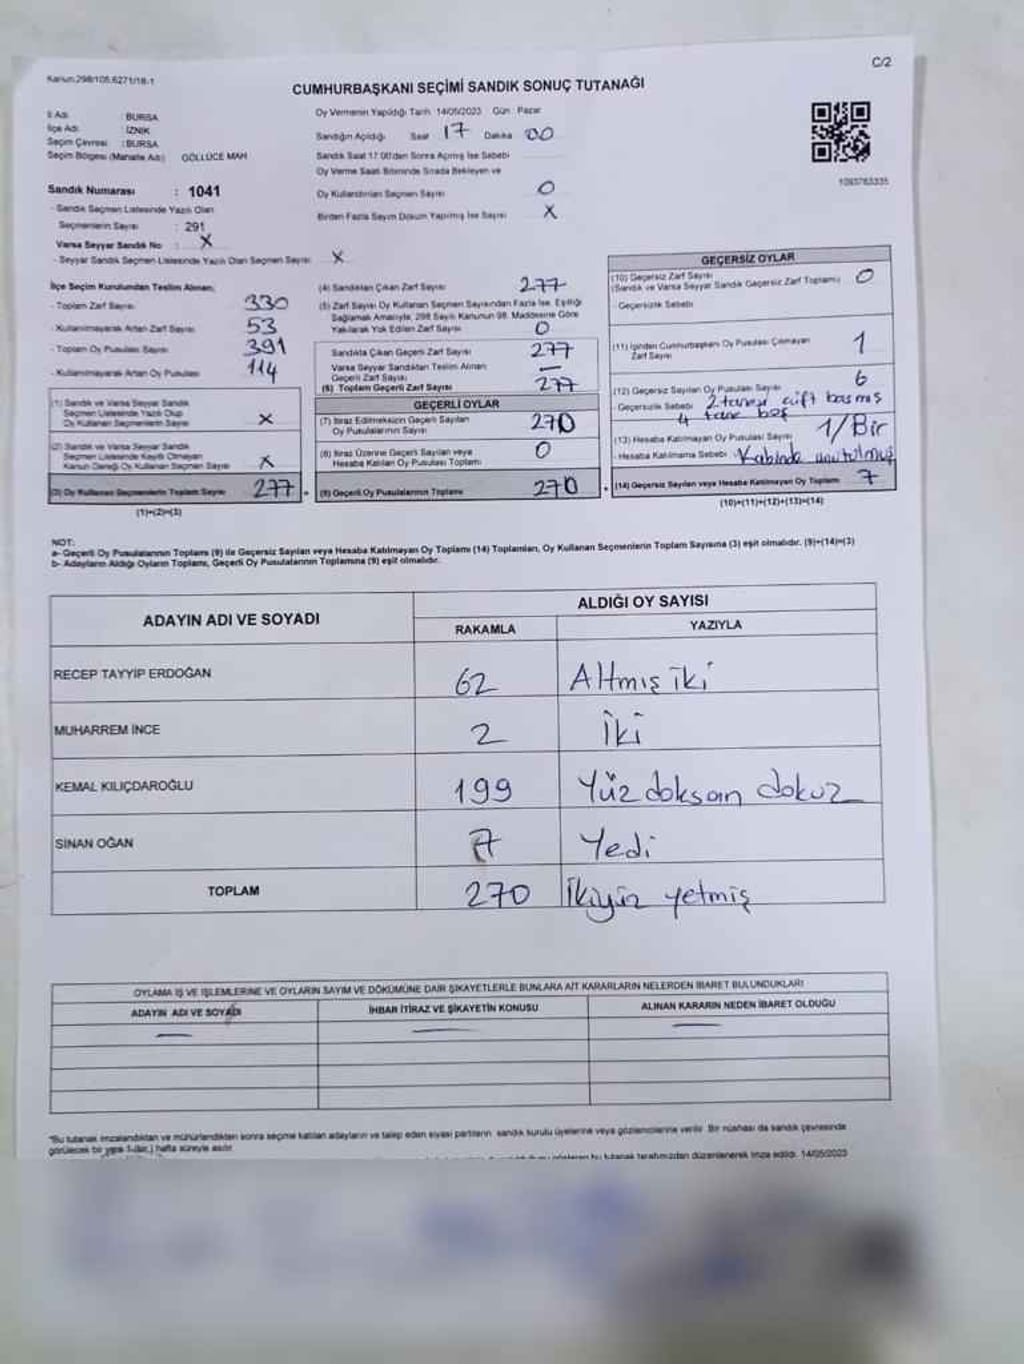 Kanun:298/105,6271/18-1
C/2
CUMHURBAŞKANI SEÇİMİ SANDIK SONUÇ TUTANAĞI
İl Adı : BURSA
İlçe Adı : İZNİK
Seçim Çevresi : BURSA
Seçim Bölgesi (Mahalle Adı) GÖLLÜCE MAH
Sandık Numarası : 1041
- Sandık Seçmen Listesinde Yazılı Olan
Seçmenlerin Sayısı : 291
Varsa Seyyar Sandık No : X
- Seyyar Sandık Seçmen Listesinde Yazılı Olan Seçmen Sayısı X
Oy Vermenin Yapıldığı Tarih 14/05/2023 Gün : Pazar
Sandığın Açıldığı Saat 17 Dakika 00
Sandık Saat 17:00'den Sonra Açılmış İse Sebebi
Oy Verme Saati Bitiminde Sırada Bekleyen ve
Oy Kullandırılan Seçmen Sayısı 0
Birden Fazla Sayım Döküm Yapılmış İse Sayısı X
1093763335
İlçe Seçim Kurulundan Teslim Alınan;
- Toplam Zarf Sayısı 330
- Kullanılmayarak Artan Zarf Sayısı 53
- Toplam Oy Pusulası Sayısı 391
- Kullanılmayarak Artan Oy Pusulası 114
(1) Sandık ve Varsa Seyyar Sandık
Seçmen Listesinde Yazılı Olup
Oy Kullanan Seçmenlerin Sayısı X
(2) Sandık ve Varsa Seyyar Sandık
Seçmen Listesinde Kayıtlı Olmayan
Kanun Gereği Oy Kullanan Seçmen Sayısı X
(3) Oy Kullanan Seçmenlerin Toplam Sayısı 277
(1)+(2)=(3)
(4) Sandıktan Çıkan Zarf Sayısı 277
(5) Zarf Sayısı Oy Kullanan Seçmen Sayısından Fazla İse, Eşitliği
Sağlamak Amacıyla, 298 Sayılı Kanunun 98. Maddesine Göre
Yakılarak Yok Edilen Zarf Sayısı 0
Sandıkta Çıkan Geçerli Zarf Sayısı 277
Varsa Seyyar Sandıktan Teslim Alınan
Geçerli Zarf Sayısı —
(6) Toplam Geçerli Zarf Sayısı 277
GEÇERLİ OYLAR
(7) İtiraz Edilmeksizin Geçerli Sayılan
Oy Pusulalarının Sayısı 270
(8) İtiraz Üzerine Geçerli Sayılan veya
Hesaba Katılan Oy Pusulası Toplamı 0
(9) Geçerli Oy Pusulalarının Toplamı 270
GEÇERSİZ OYLAR
(10) Geçersiz Zarf Sayısı
(Sandık ve Varsa Seyyar Sandık Geçersiz Zarf Toplamı) 0
Geçersizlik Sebebi
(11) İçinden Cumhurbaşkanı Oy Pusulası Çıkmayan
Zarf Sayısı 1
(12) Geçersiz Sayılan Oy Pusulası Sayısı 6
- Geçersizlik Sebebi 2 tanesi çift basmış
4 tane boş
(13) Hesaba Katılmayan Oy Pusulası Sayısı 1/Bir
- Hesaba Katılmama Sebebi Kabinde unutulmuş
(14) Geçersiz Sayılan veya Hesaba Katılmayan Oy Toplamı 7
(10)+(11)+(12)+(13)=(14)
NOT:
a- Geçerli Oy Pusulalarının Toplamı (9) ile Geçersiz Sayılan veya Hesaba Katılmayan Oy Toplamı (14) Toplamları, Oy Kullanan Seçmenlerin Toplam Sayısına (3) eşit olmalıdır. (9)+(14)=(3)
b- Adayların Aldığı Oyların Toplamı, Geçerli Oy Pusulalarının Toplamına (9) eşit olmalıdır.
ADAYIN ADI VE SOYADI ALDIĞI OY SAYISI
RAKAMLA YAZIYLA
RECEP TAYYİP ERDOĞAN 62 Altmış iki
MUHARREM İNCE 2 İki
KEMAL KILIÇDAROĞLU 199 Yüz doksan dokuz
SİNAN OĞAN 7 Yedi
TOPLAM 270 İkiyüz yetmiş
OYLAMA İŞ VE İŞLEMLERİNE VE OYLARIN SAYIM VE DÖKÜMÜNE DAİR ŞİKAYETLERLE BUNLARA AİT KARARLARIN NELERDEN İBARET BULUNDUKLARI
ADAYIN ADI VE SOYADI İHBAR İTİRAZ VE ŞİKAYETİN KONUSU ALINAN KARARIN NEDEN İBARET OLDUĞU
— — —
*Bu tutanak imzalandıktan ve mühürlendikten sonra seçime katılan adayların ve talep eden siyasi partilerin sandık kurulu üyelerine veya gözlemcilerine verilir. Bir nüshası da sandık çevresinde
görülecek bir yere 1 (bir) hafta süreyle asılır.
bu tutanak tarafımızdan düzenlenerek imza edildi. 14/05/2023